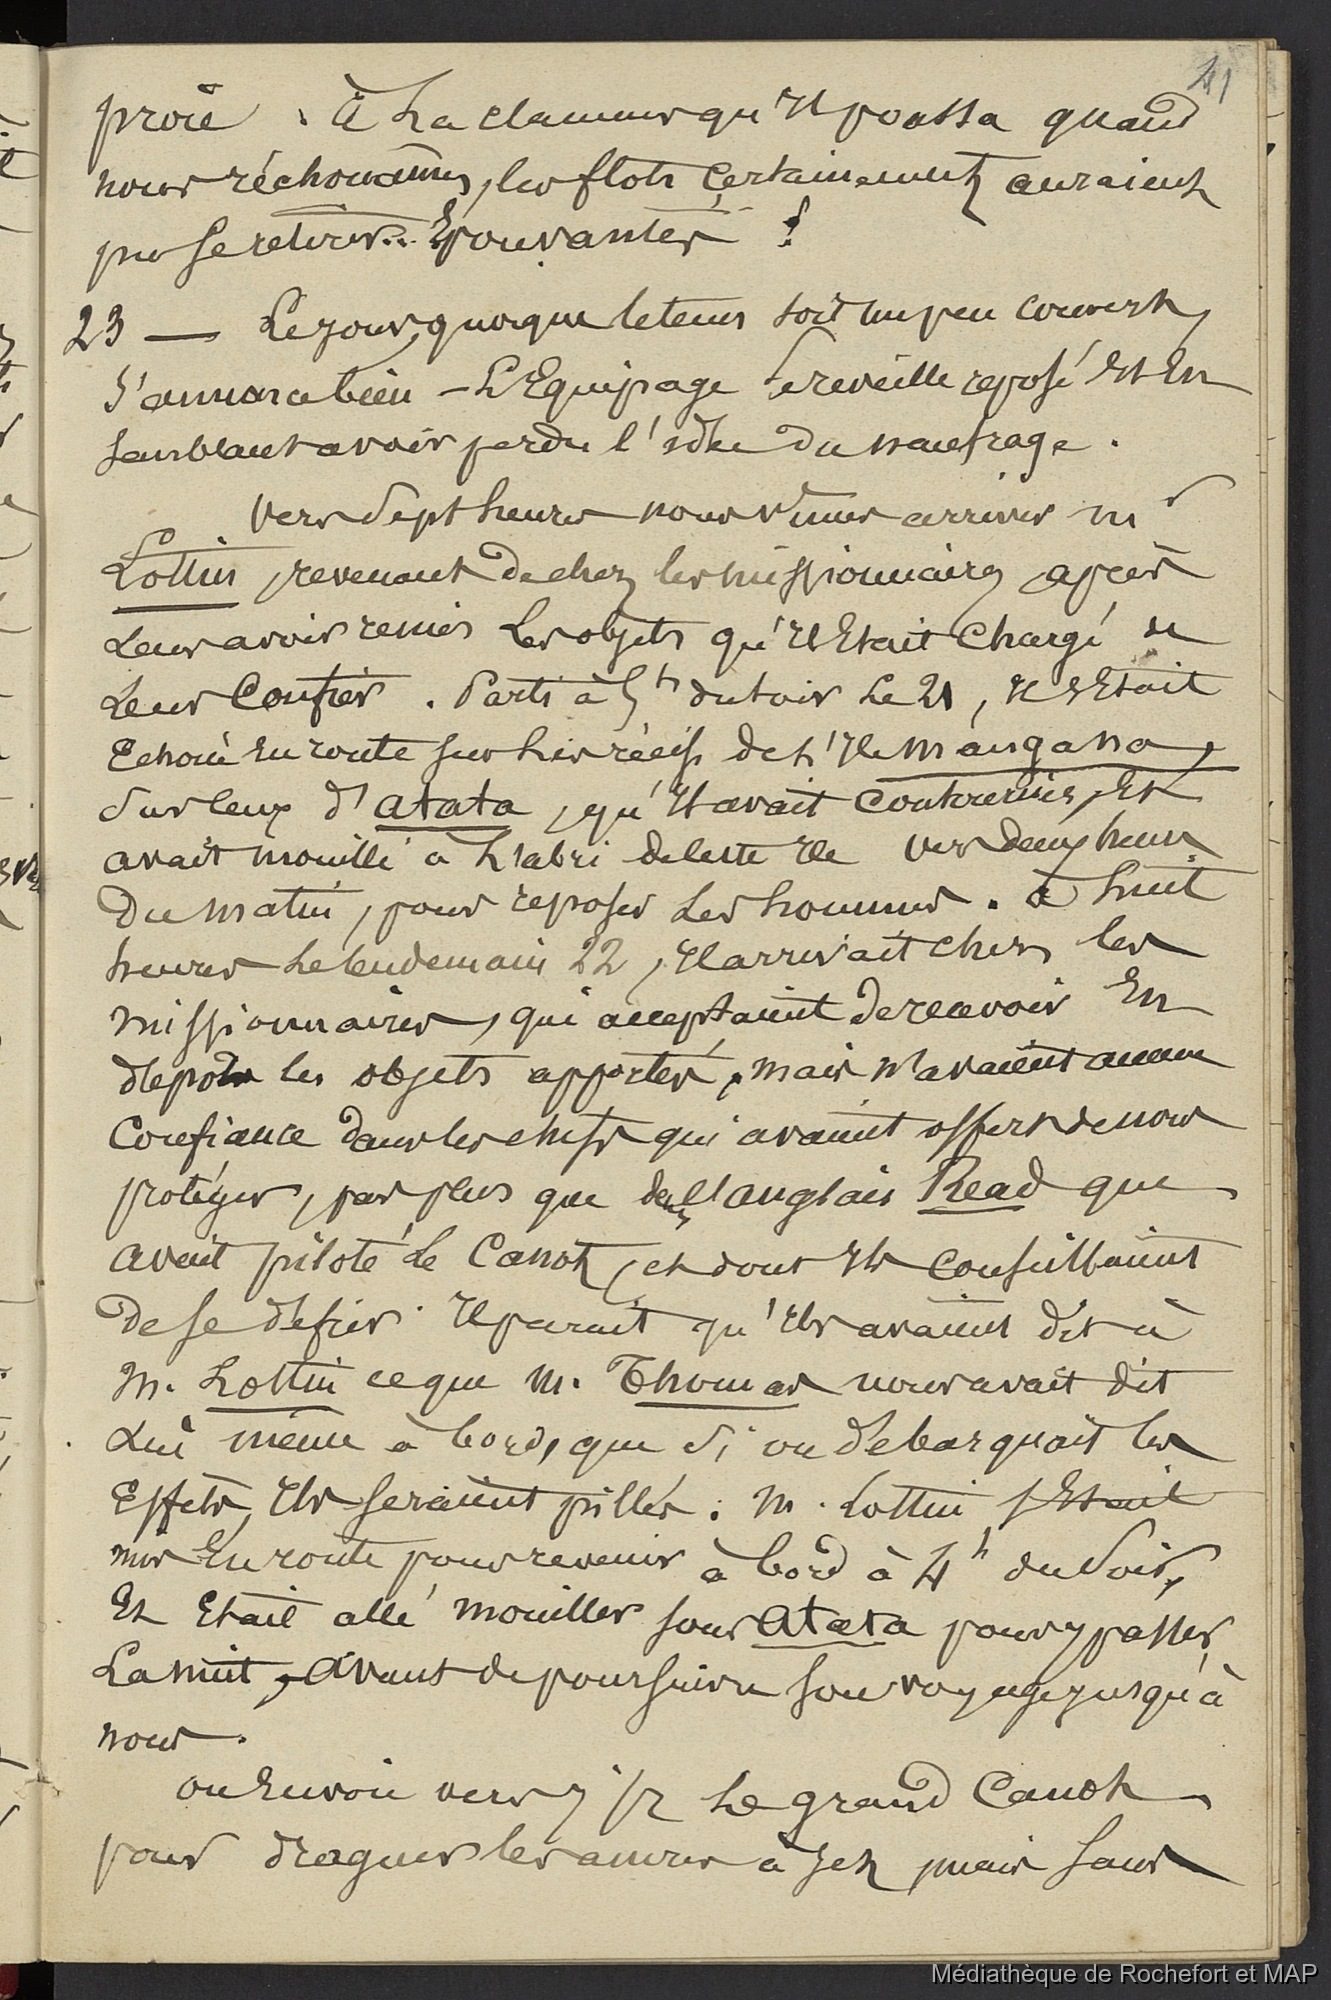 41
proie . à la clameur qu'Il poussa quand
nous réchouâmes, les flots certainement auraient
pu se retirer... Epouvantés !
23 — Le jour, quoique le tems soit un peu couvert,
s'annonce bien – L'Equipage se reveille reposé Et En
semblant avoir perdu l'idée du naufrage .
Vers sept heures nous vîmes arriver mr
Lottin, revenant de chez les missionnaires, après
Leur avoir remis Les objets qu'Il Etait chargé de
Leur Confier . Parti à 5h du soir Le 21, Il s'Etait
Echoué En route sur les récifs de l'Ile mangano,
sur ceux d'atata, qu'Il avait contournés, Et
avait mouillé à l'abri de cette Ile vers deux heures
Du matin, pour reposer Les hommes . à huit
heures Le lendemain 22, Il arrivait chez les
missionnaires, qui acceptaient de recevoir En
dépot les objets apportés, mais n'avaient aucune
Confiance dans les chefs qui avaient offert de nous
protéger, pas plus que dans l'anglais Read que
avait piloté le Canot, et dont Ils conseillaient
De se défier . Il parait qu'Ils avaient dit à
M. Lottin ce que M. Thomas nous avait dit
Lui même à bord, que si on débarquait les
Effets, Ils seraient pillés . M. Lottin s'Etait
mis En route pour revenir à bord à 4h du soir,
Et Etait allé mouiller sous atata pour y passer
La nuit, avant de poursuivre son voyage jusqu'à
nous .
on Envoie vers 7 1/2 Le grand Canot
pour draguer les ancres à jet, mais sans
Médiathèque de Rochefort et MAP